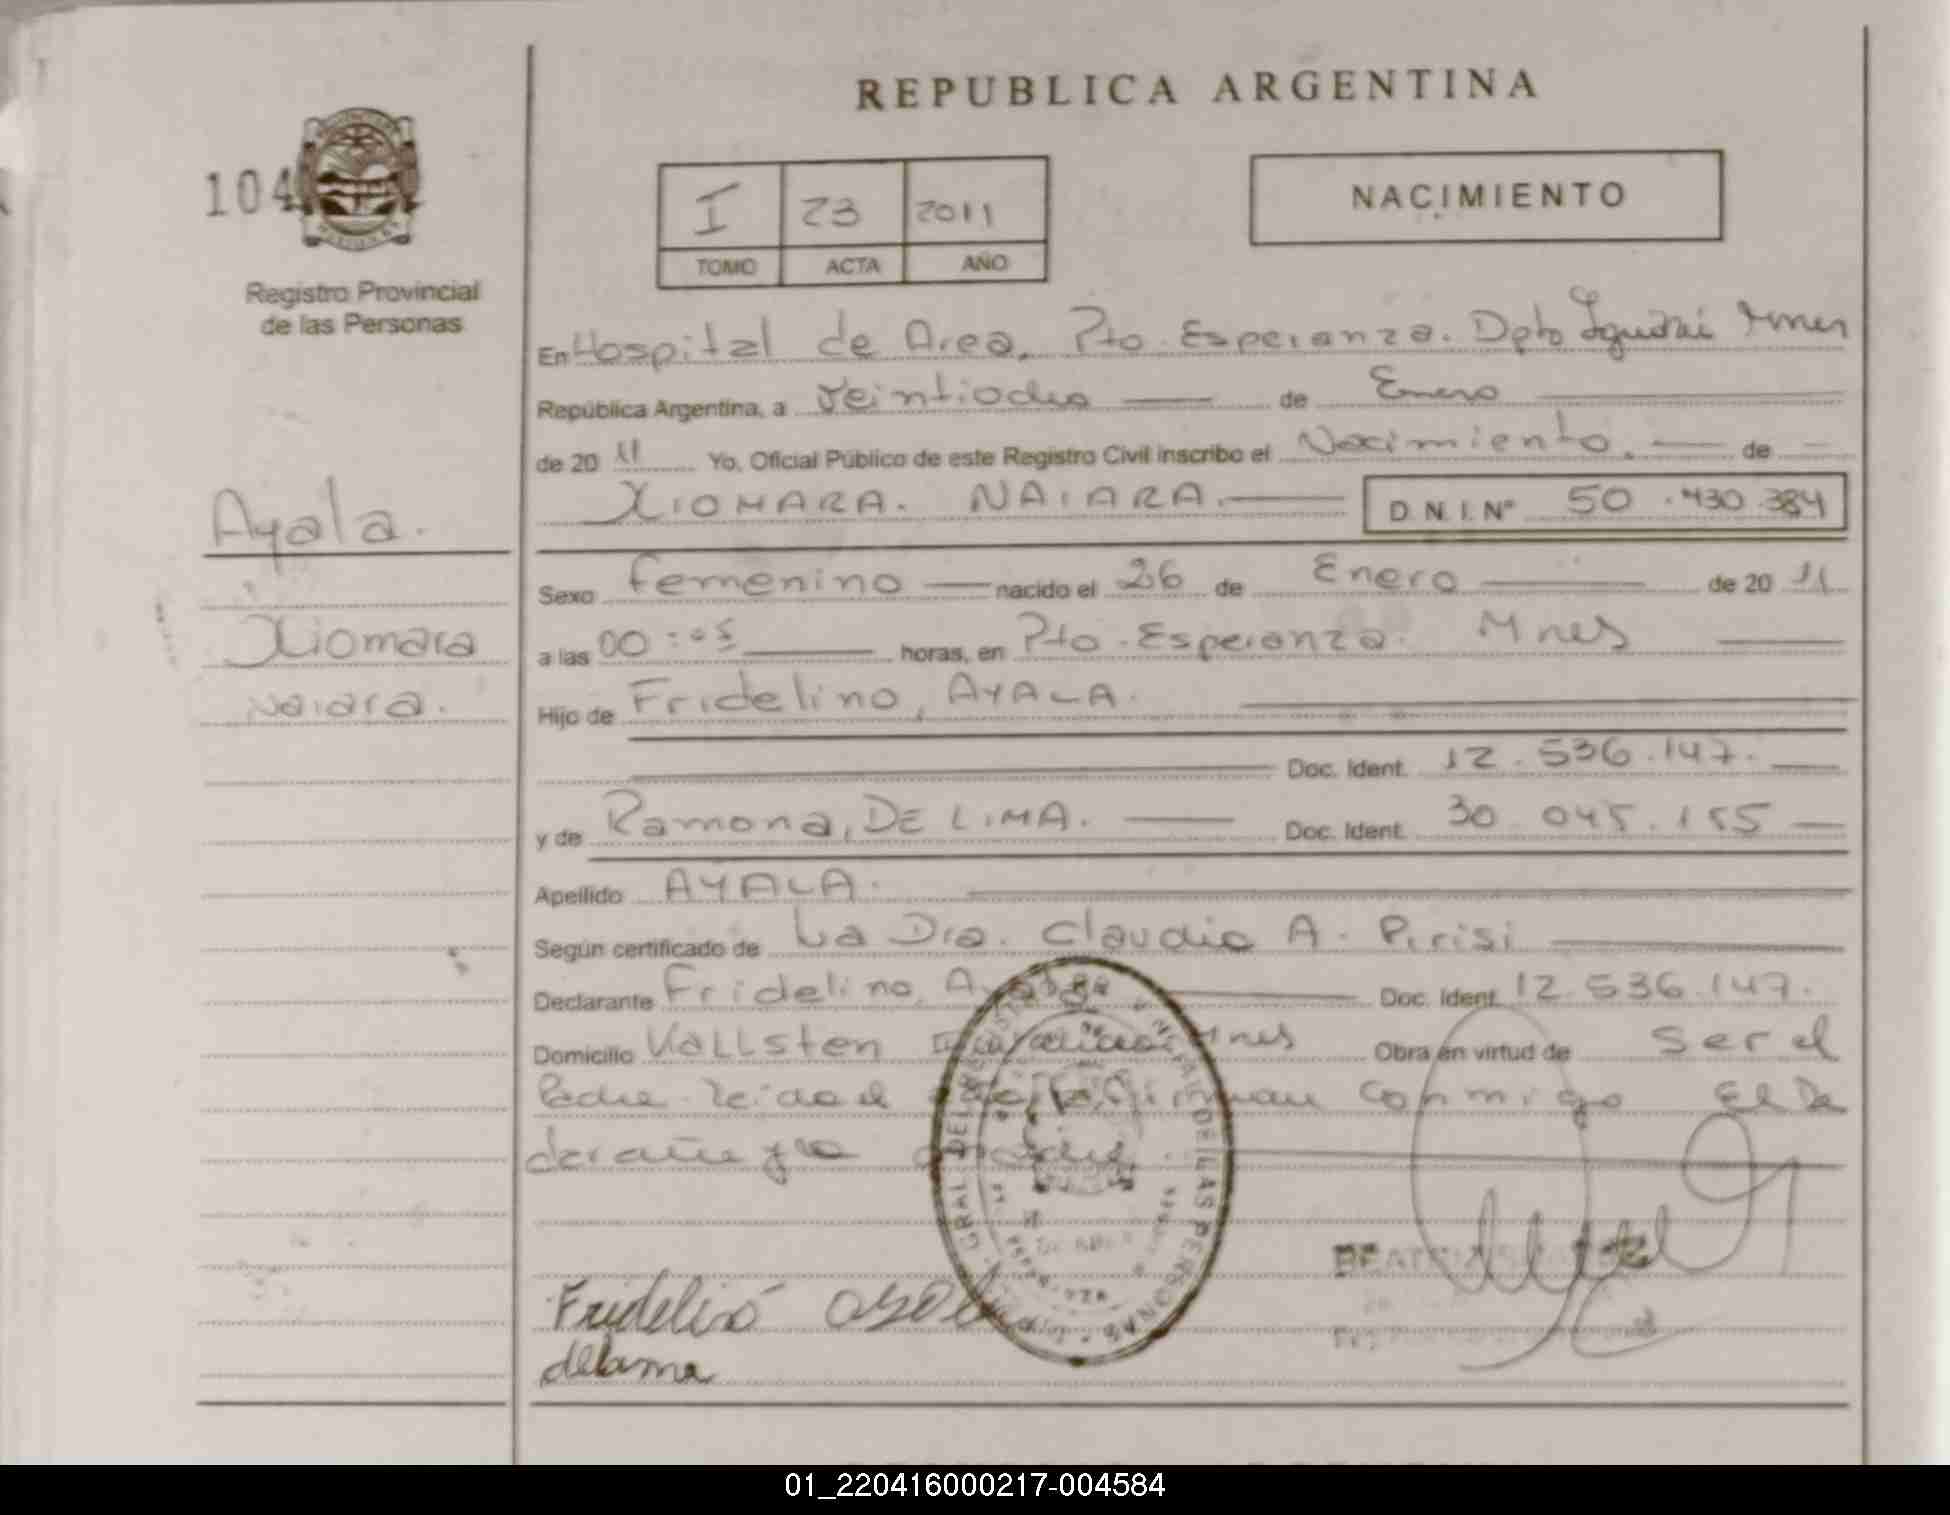 REPUBLICA ARGENTINA
104
Registro Provincial
de las Personas
I 23 2011
TOMO ACTA AÑO
NACIMIENTO
En Hospital de Area, Pto. Esperanza. Dpto Iguazú Mnes
República Argentina, a Veintiocho de Enero
de 20 11 Yo, Oficial Público de este Registro Civil inscribo el Nacimiento. de
XIOMARA. NAIARA. D.N.I.Nº 50.430.384
Ayala.
Xiomara
Naiara.
Sexo femenino nacido el 26 de Enero de 20 11
a las 00:05 horas, en Pto. Esperanza. Mnes
Hijo de Fridelino, AYALA.
Doc. Ident. 12.536.147.
y de Ramona, DE LIMA. Doc. Ident. 30.045.155
Apellido AYALA.
Según certificado de La Dra. Claudia A. Pirisi
Declarante Fridelino, Ayala Doc. Ident. 12.536.147.
Domicilio Mnes Obra en virtud de ser el
Padre. Leida el firman conmigo El De
clarante y la madre.
GRAL. DEL REGISTRO PROVINCIAL DE LAS PERSONAS
Fridelino ayala
delima
01_220416000217-004584